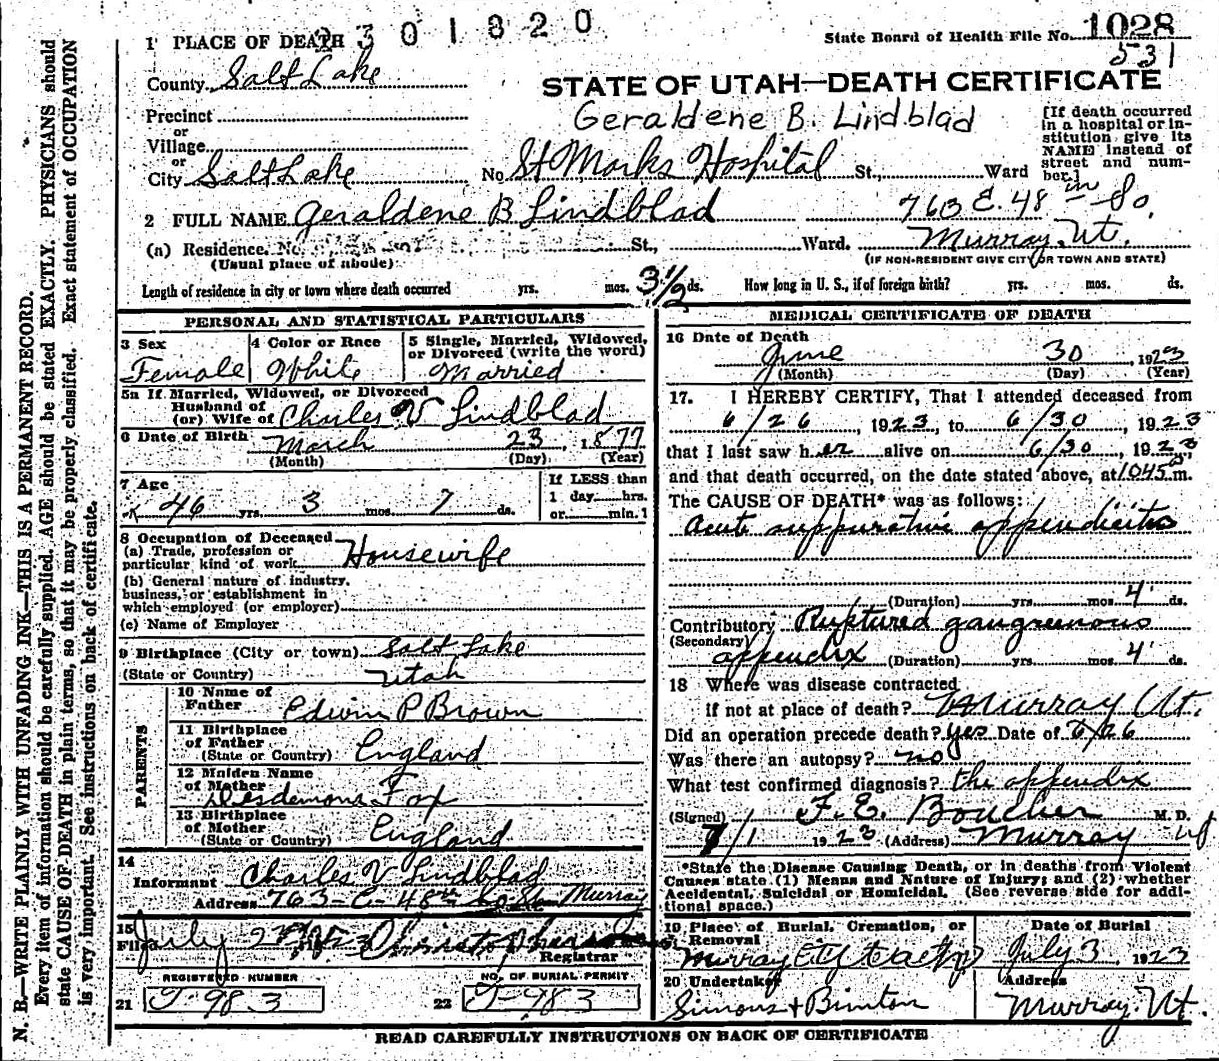 2301820
State Board of Health File No. 1028
531
1 PLACE OF DEATH
County Salt Lake
STATE OF UTAH—DEATH CERTIFICATE
Precinct
Geraldene B. Lindblad
or
Village
or
City Salt Lake No St Marks Hospital St., Ward
[If death occurred in a hospital or institution give its NAME instead of street and number.]
2 FULL NAME Geraldene B Lindblad 763 E. 48 So.
(a) Residence. No. St., Ward. Murray, Ut.
(Usual place of abode) (IF NON-RESIDENT GIVE CITY OR TOWN AND STATE)
Length of residence in city or town where death occurred yrs. mos. 3½ ds. How long in U. S., if of foreign birth? yrs. mos. ds.
PERSONAL AND STATISTICAL PARTICULARS
3 Sex Female
4 Color or Race White
5 Single, Married, Widowed, or Divorced (write the word) Married
5a If Married, Widowed, or Divorced
Husband of
(or) Wife of Charles V Lindblad
6 Date of Birth March 23, 1877
(Month) (Day) (Year)
7 Age
46 yrs. 3 mos. 7 ds.
If LESS than
1 day hrs.
or min.
8 Occupation of Deceased
(a) Trade, profession or
particular kind of work Housewife
(b) General nature of industry.
business, or establishment in
which employed (or employer)
(c) Name of Employer
9 Birthplace (City or town) Salt Lake
(State or Country) Utah
PARENTS
10 Name of
Father Edwin P Brown
11 Birthplace
of Father
(State or Country) England
12 Maiden Name
of Mother Desdemona Fox
13 Birthplace
of Mother
(State or Country) England
14
Informant Charles V Lindblad
Address 763 E 48th So St Murray
15
Filed July 2
Registrar
REGISTERED NUMBER NO. OF BURIAL PERMIT
21 J-983 22 J-983
MEDICAL CERTIFICATE OF DEATH
16 Date of Death
June 30, 1923
(Month) (Day) (Year)
17. I HEREBY CERTIFY, That I attended deceased from
6/26, 1923, to 6/30, 1923
that I last saw her alive on 6/30, 1923
and that death occurred, on the date stated above, at 1045 m.
The CAUSE OF DEATH* was as follows:
Acute suppurative appendicitis
(Duration) yrs. mos. 4 ds.
Contributory Ruptured gangreenous
(Secondary)
appendix (Duration) yrs. mos. 4 ds.
18 Where was disease contracted
if not at place of death? Murray Ut.
Did an operation precede death? yes Date of 6/26
Was there an autopsy? no
What test confirmed diagnosis? the appendix
(Signed) F. E. Boucher M. D.
7/1 1923 (Address) Murray Ut
*State the Disease Causing Death, or in deaths from Violent
Causes state (1) Means and Nature of Injury; and (2) whether
Accidental, Suicidal or Homicidal. (See reverse side for additional space.)
19 Place of Burial, Cremation, or
Removal
Murray City
Date of Burial
July 3 1923
20 Undertaker
Simons +
Address
Murray, Ut.
READ CAREFULLY INSTRUCTIONS ON BACK OF CERTIFICATE
N. B.—WRITE PLAINLY WITH UNFADING INK—THIS IS A PERMANENT RECORD.
Every item of information should be carefully supplied. AGE should be stated EXACTLY. PHYSICIANS should
state CAUSE OF DEATH in plain terms, so that it may be properly classified. Exact statement of OCCUPATION
is very important. See instructions on back of certificate.